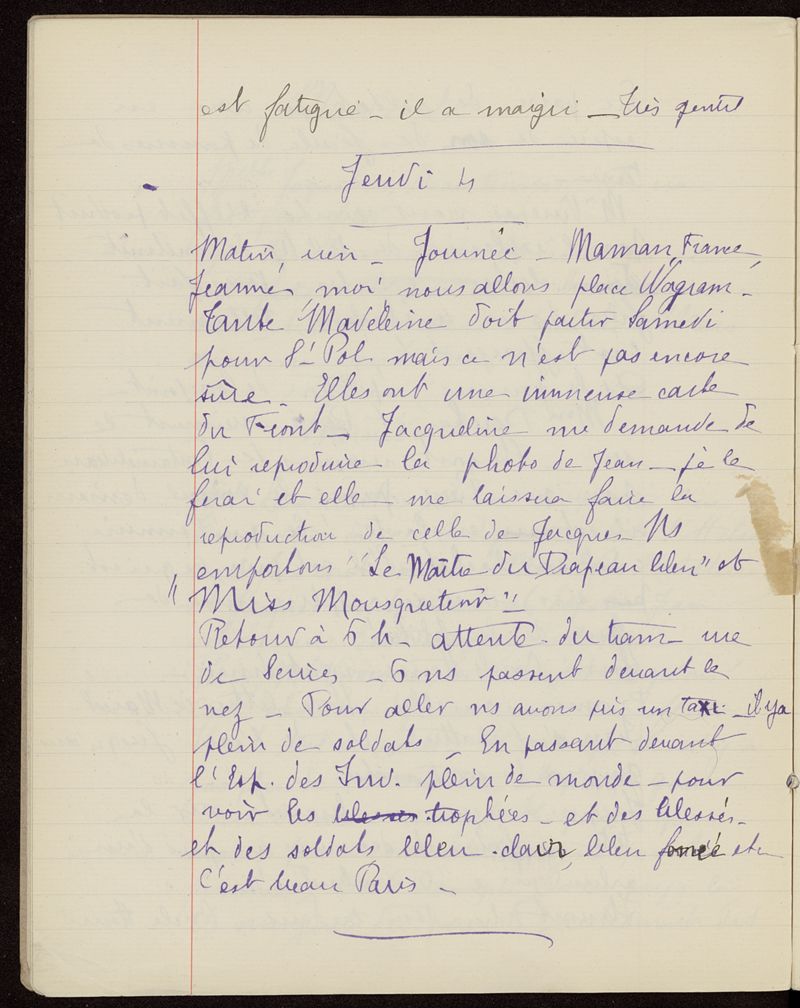 est fatigué – il a maigri – très gentil
Jeudi 4
Matin, rien – Journée – Maman, France,
Jeanne, moi, nous allons place Wagram –
Tante Madeleine doit partir Samedi
pour St Pol mais ce n'est pas encore
sûre – Elles ont une immense carte
du Front – Jacqueline me demande de
lui reproduire la photo de Jean – je le
ferai et elle – me laissera faire la
reproduction de celle de Jacques Ns
emportons "Le Maître du Drapeau bleu" et
"Miss Mousqueterr"
Retour à 6 h – attente du tram – rue
de Sèvres – 6 ns passent devant le
nez – Pour aller ns avons pris un taxi – il y a
plein de soldats – En passant devant
l'Esp. des Inv. plein de monde – pour
voir les blessés trophées – et des blessés –
et des soldats bleu clair, bleu foncé etc
C'est beau Paris –